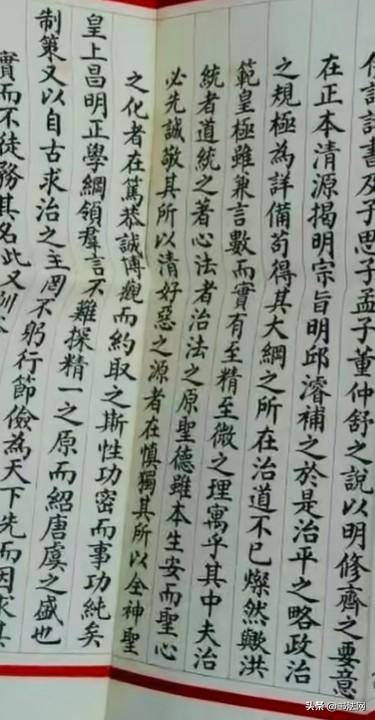 詩書及子思子孟子董仲舒之說以明修齊之要意
在正本清源揭明宗旨明邱濬補之於是治平之略政治
之規極為詳備苟得其大綱之所在治道不已燦然歟洪
範皇極雖兼言數而實有至精至微之理寓乎其中夫治
統者道統之著心法者治法之原聖德雖本生安而聖心
必先誠敬其所以清好惡之源者在慎獨其所以全神聖
之化者在篤恭誠博觀而約取之斯性功密而事功純矣
皇上昌明正學綱領羣言不難探精一之原而紹唐虞之盛也
制策又以自古求治之主罔不躬行節儉為天下先而因求其
實而不徒務其名此又
头条 @书法网